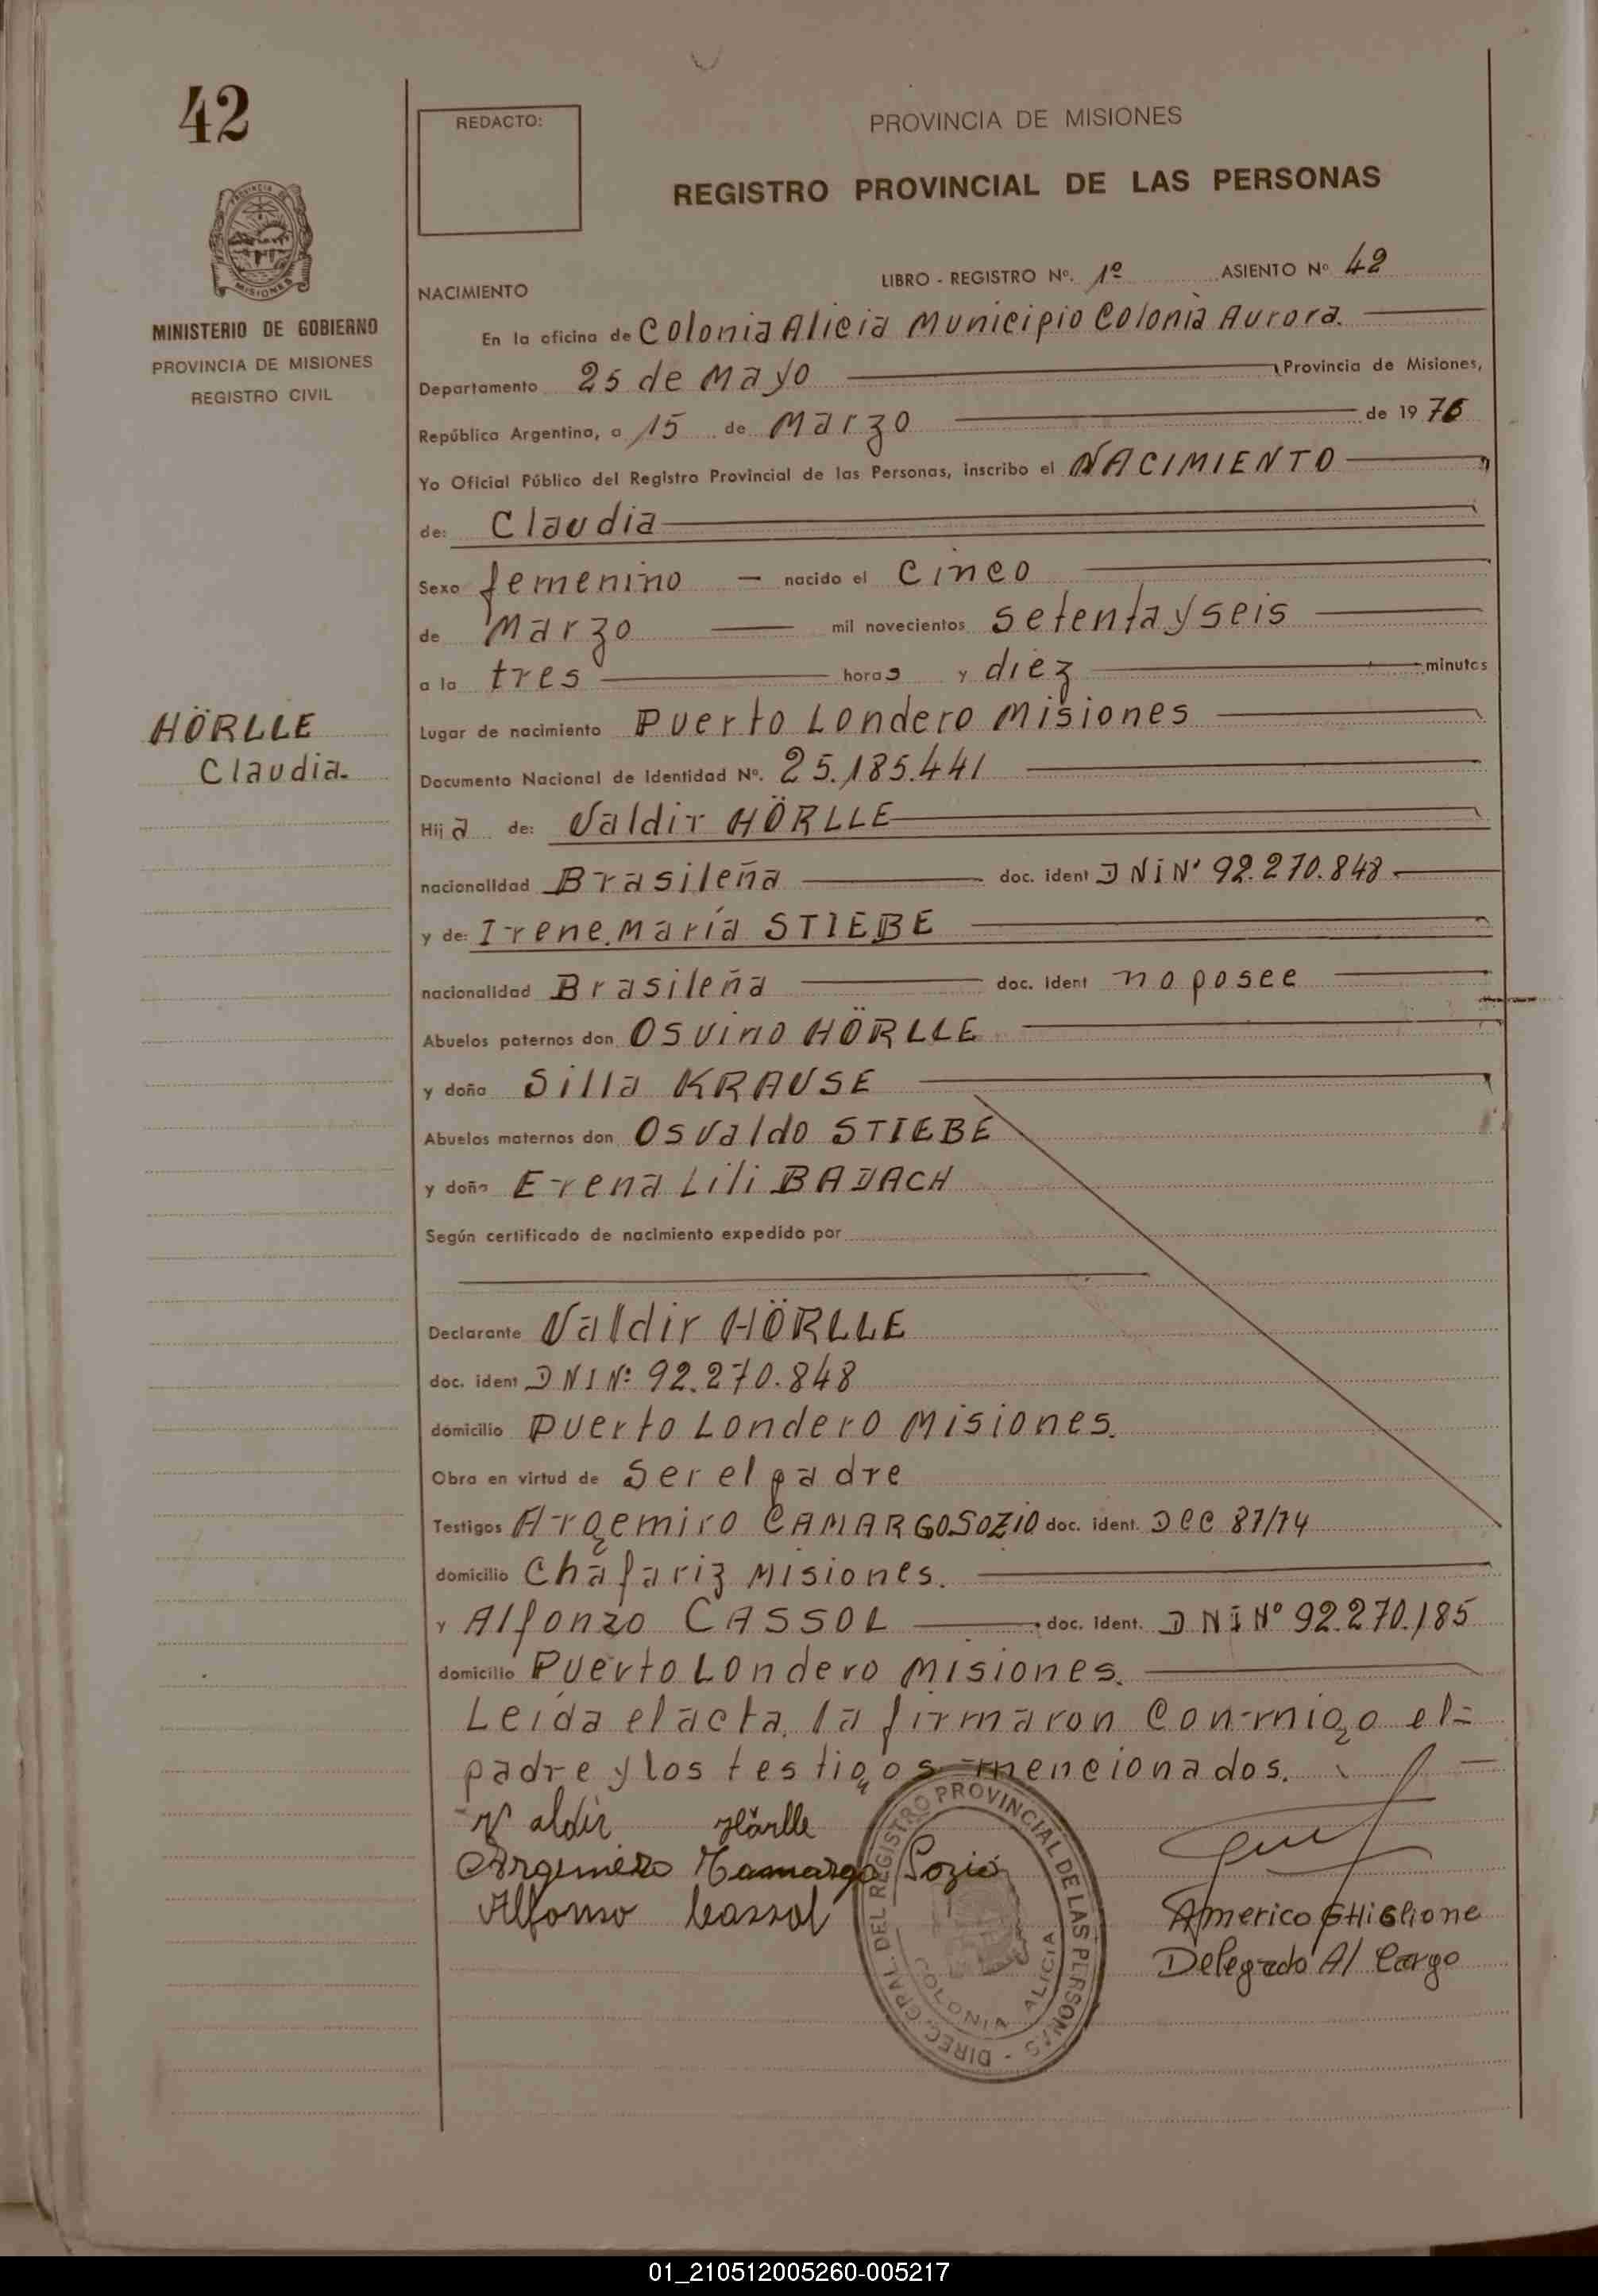 42
REDACTO:
PROVINCIA DE MISIONES
REGISTRO PROVINCIAL DE LAS PERSONAS
PROVINCIA DE MISIONES
MINISTERIO DE GOBIERNO
PROVINCIA DE MISIONES
REGISTRO CIVIL
LIBRO - REGISTRO Nº. 1º ASIENTO Nº 42
NACIMIENTO
En la oficina de Colonia Alicia Municipio Colonia Aurora.
Departamento 25 de Mayo Provincia de Misiones,
República Argentina, a 15 de Marzo de 1976
Yo Oficial Público del Registro Provincial de las Personas, inscribo el NACIMIENTO
de: Claudia
Sexo femenino — nacido el Cinco
de Marzo — mil novecientos setenta y seis
a la tres horas y diez minutos
HÖRLLE
Claudia.
Lugar de nacimiento Puerto Londero Misiones
Documento Nacional de Identidad Nº. 25.185.441
Hija de: Valdir HÖRLLE
nacionalidad Brasileña doc. ident DNI Nº 92.270.848
y de: Irene María STIEBE
nacionalidad Brasileña doc. ident no posee
Abuelos paternos don Osvino HÖRLLE
y doña Silla KRAUSE
Abuelos maternos don Osvaldo STIEBE
y doña Erena Lili BADACH
Según certificado de nacimiento expedido por
Declarante Valdir HÖRLLE
doc. ident DNI Nº 92.270.848
domicilio Puerto Londero Misiones.
Obra en virtud de Ser el padre
Testigos Argemiro CAMARGO SOZIO doc. ident. DCC 87/74
domicilio Chafariz Misiones.
y Alfonzo CASSOL doc. ident. DNI Nº 92.270.185
domicilio Puerto Londero Misiones.
Leída el acta, la firmaron Conmigo el=
padre y los testigos mencionados. —
Valdir Hörlle
Argemiro Camargo Sozio
Alfonso Cassol
DIREC. GRAL. DEL REGISTRO PROVINCIAL DE LAS PERSONAS
COLONIA ALICIA
Americo GHiGlione
Delegado A/ Cargo
01_210512005260-005217